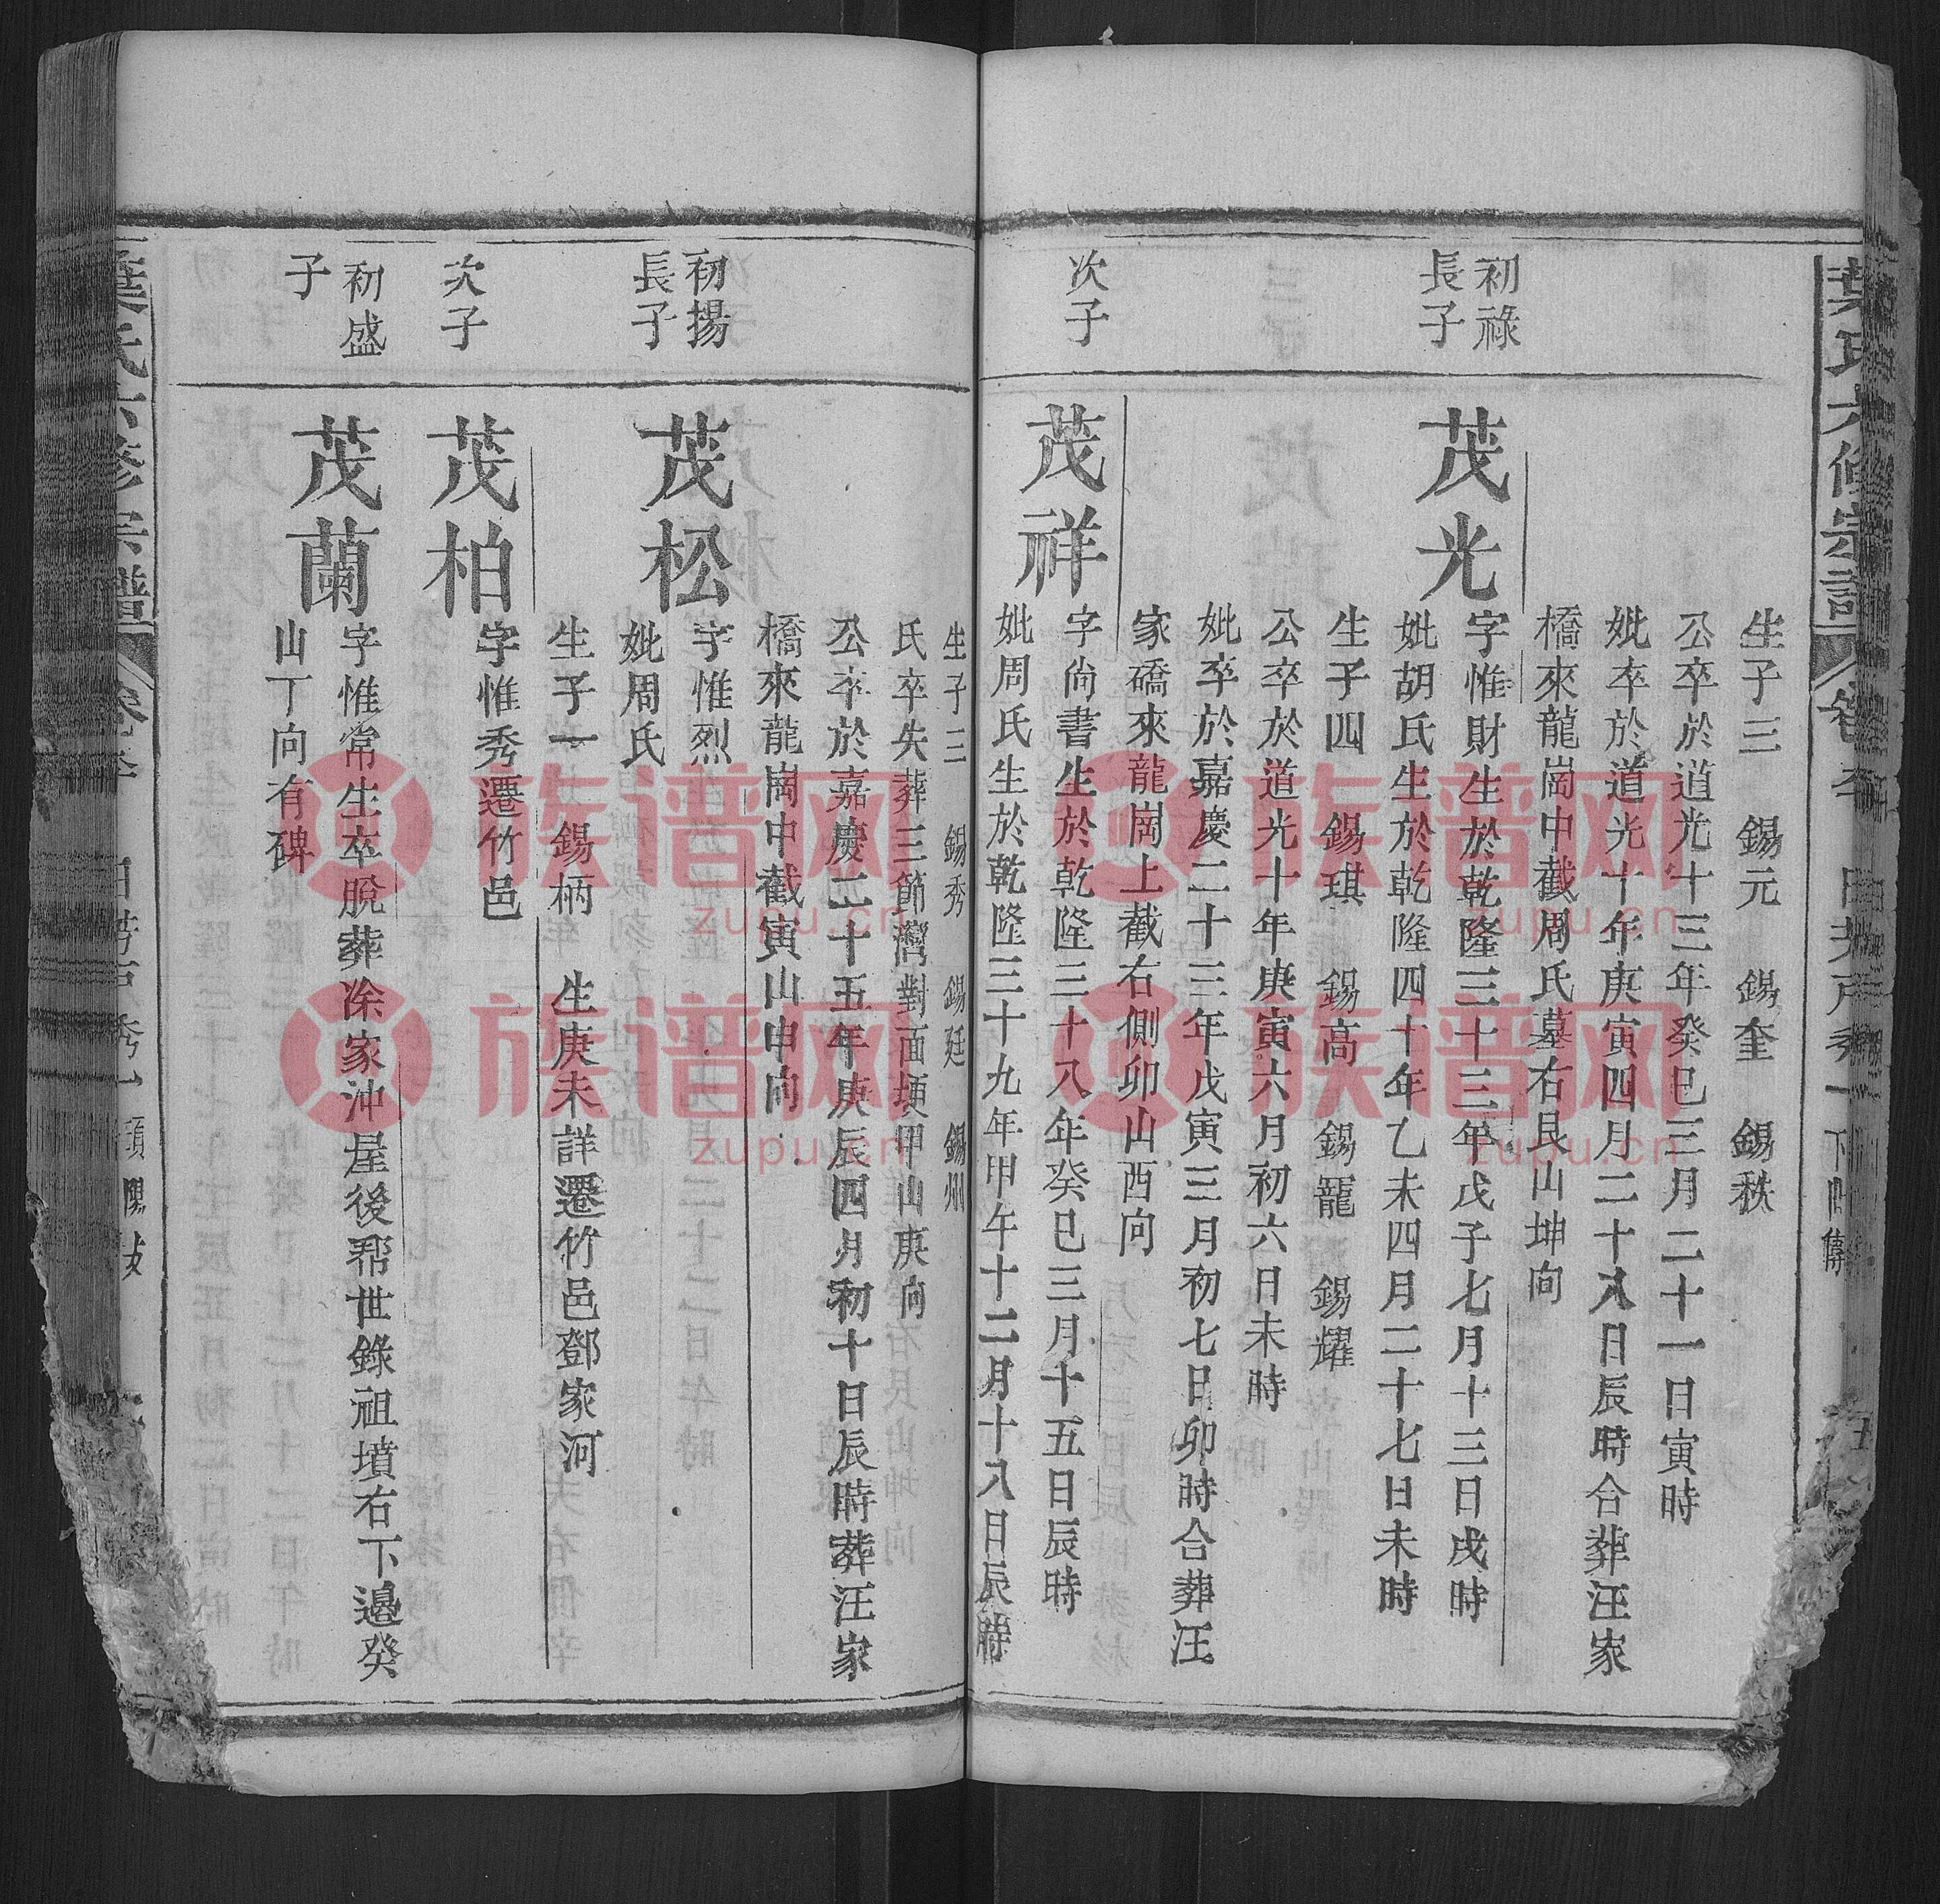 葉氏六修宗譜
生子三 錫元 錫奎 錫秩
公卒於道光十三年癸巳三月二十一日寅時
妣卒於道光十年庚寅四月二十八日辰時合葬汪家
橋來龍崗中截周氏墓右艮山坤向
初祿
長子
茂光
字惟財生於乾隆三十三年戊子七月十三日戌時
妣胡氏生於乾隆四十年乙未四月二十七日未時
生子四 錫琪 錫高 錫龍 錫耀
公卒於道光十年庚寅六月初六日未時
妣卒於嘉慶二十三年戊寅三月初七日卯時合葬汪
家礄來龍崗上截右側卯山酉向
次子
茂祥
字尚書生於乾隆三十八年癸巳三月十五日辰時
妣周氏生於乾隆三十九年甲午十二月十八日辰時
生子三 錫秀 錫廷 錫州
氏卒失葬三節灣對面埂甲山庚向
公卒於嘉慶二十五年庚辰四月初十日辰時葬汪家
橋來龍崗中截寅山申向
初揚
長子
茂松
字惟烈
妣周氏
生子一 錫柄 生庚未詳遷竹邑鄧家河
次子
茂柏
字惟秀遷竹邑
初盛
子
茂蘭
字惟常生卒脫葬涂家沖屋後帮世錄祖墳右下邊癸
山丁向有碑
葉氏六修宗譜
族谱网
zupu.cn
族谱网
zupu.cn
族谱网
zupu.cn
族谱网
zupu.cn